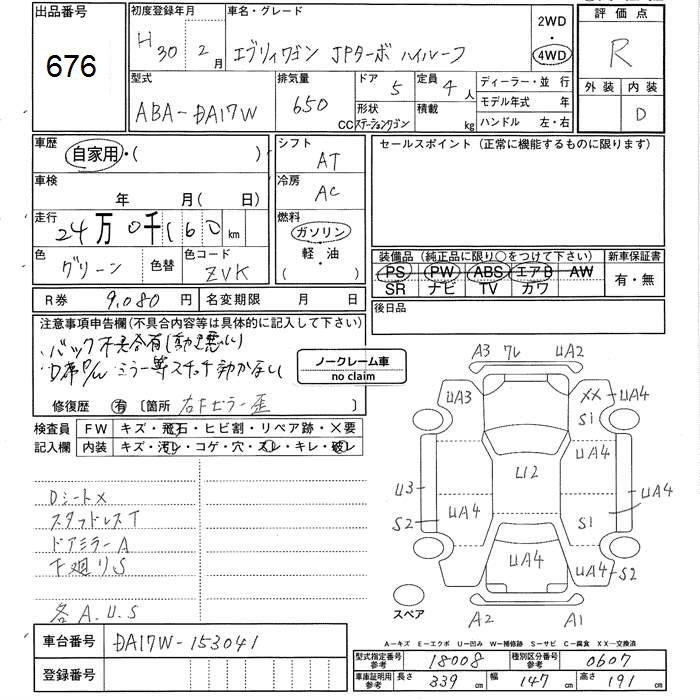 出品番号
676
初度登録年月
H 30年 2月
車名・グレード
エブリィワゴン JPターボ ハイルーフ
2WD
4WD
評価点
R
外装 内装
D
型式
ABA-DA17W
排気量
650
CC
ドア 5
形状
ステーションワゴン
定員 4人
積載
kg
ディーラー・並 行
モデル年式 年
ハンドル 左・右
車歴
自家用・( )
シフト
AT
セールスポイント(正常に機能するものに限ります)
車検
年 月( 日)
冷房
AC
走行
24万0千160km
燃料
ガソリン
軽・油
( )
色
グリーン
色替
色コード
ZVK
装備品(純正品に限り○をつけて下さい)
PS PW ABS エアB AW
SR ナビ TV カワ
新車保証書
有・無
R券 9,080円
名変期限 月 日
後日品
注意事項申告欄(不具合内容等は具体的に記入して下さい)
バック不具合有(動き悪い)
D席P/W ミラー等スイッチ効かない
ノークレーム車
no claim
修復歴 有 〔箇所 右Fピラー歪 〕
検査員
記入欄
FW キズ・飛石・ヒビ割・リペア跡・×要
内装 キズ・汚レ・コゲ・穴・スレ・キレ・破レ
Dシート×
スタッドレスT
ドアミラーA
下廻りS
各A.U.S
A3 ワレ UA2
UA3
XX UA4
S1
UA4
U2
U3
UA4
UA4
S2
S1
UA4
UA4
S2
スペア
A2 A1
A-キズ E-エクボ U-凹み W-補修跡 S-サビ C-腐食 XX-交換済
車台番号 DA17W-153041
登録番号
型式指定番号
参考
18008
種別区分番号
参考
0607
車庫証明用
参考
長さ 339 cm 幅 147 cm 高さ 191 cm